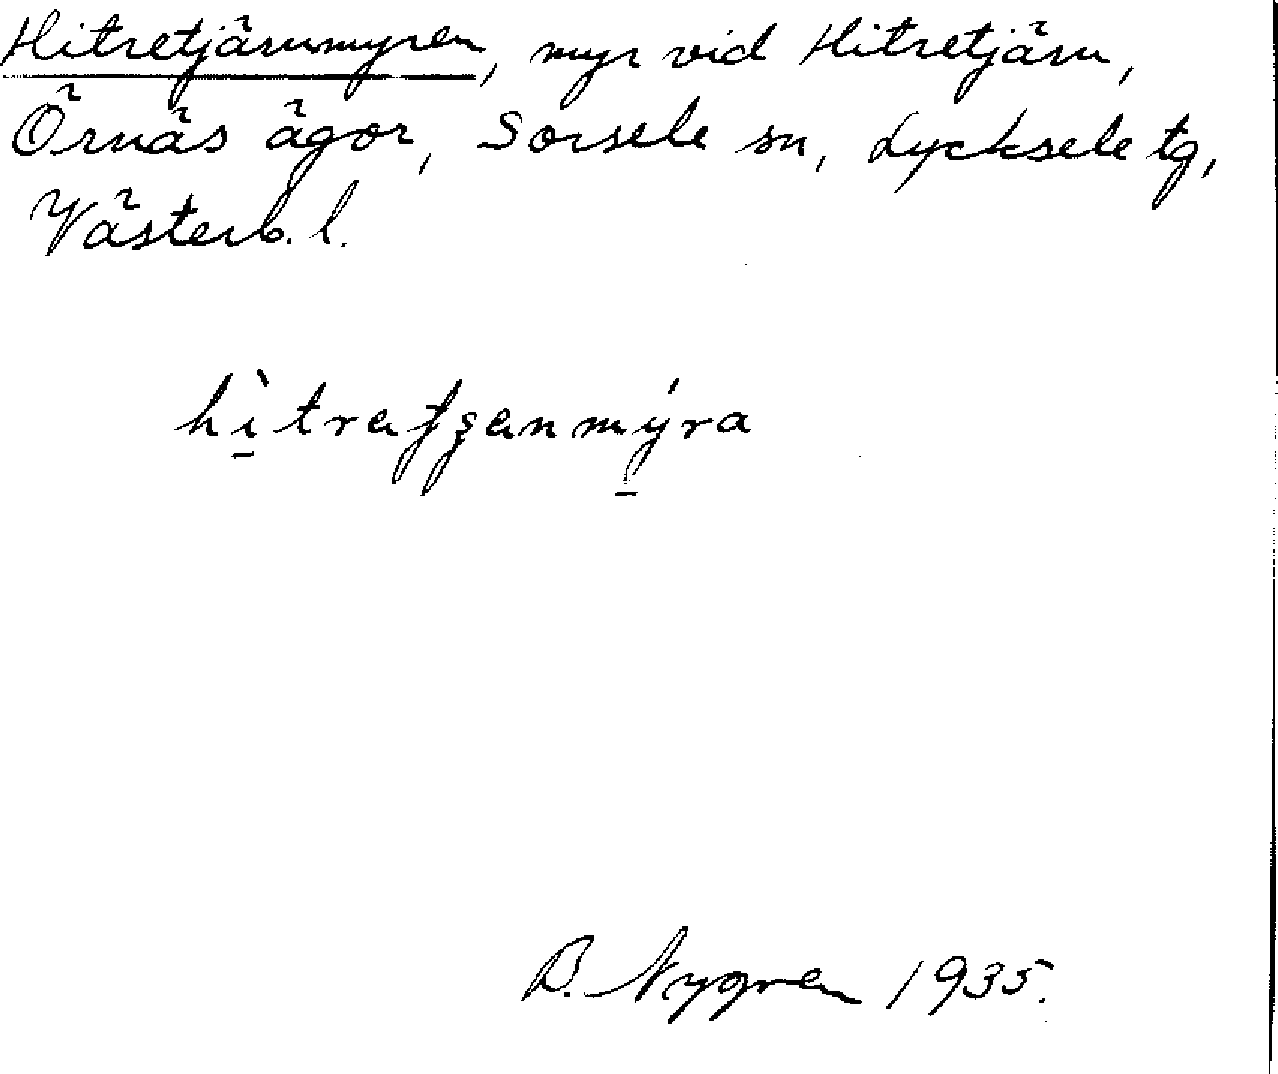 Hitretjärnmyren, myr vid Hitretjärn,
Örnäs ägor, Sorsele sn, Lycksele tg,
Västerb. l.
B. Nygren 1935.